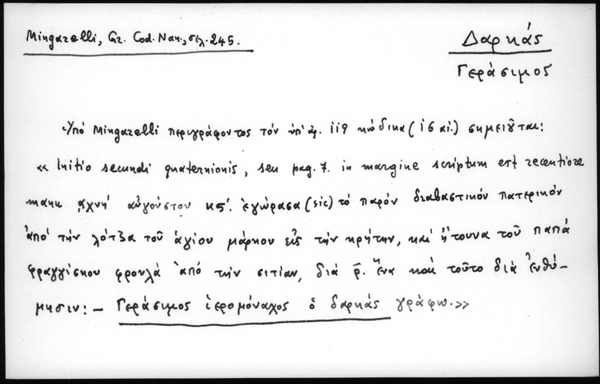 Mingarelli, Gr. Cod. Nan., σελ. 245.
Δαρκάς
Γεράσιμος
Ὑπό Mingarelli περιγράφοντος τόν ὑπ' ἀρ. 119 κώδικα (16 αἰ.) σημειοῦται:
« Initio secundi quaternionis, seu pag. 7. in margine scriptum est recentiore
manu αχνη' αὐγούστου κς'. ἐγώρασα (sic) τό παρόν διαβαστικόν πατερικόν
ἀπό τήν λότζα τοῦ ἁγίου μάρκου εἰς τήν κρήτην, καί ἤτουνα τοῦ παπᾶ
φραγγίσκου φρουλᾶ ἀπό τήν σιτίαν, διά ῥ. ἕνα καί τοῦτο διά ἐνθύ-
μησιν: – Γεράσιμος ἱερομόναχος ὁ δαρκάς γράφω.»